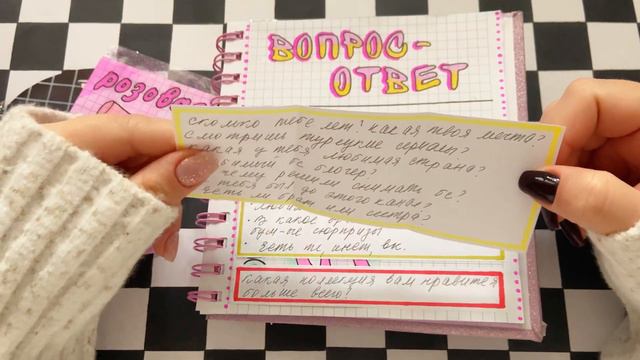 ВОПРОС-
ОТВЕТ
розовая
сколько тебе лет? какая твоя мечта?
смотришь турецкие сериалы?
какая у тебя любимая страна?
блогер?
чему решили снимать бс?
тебя был до этого канал?
есть ли брат или сестра?
В какое
бум-пе сюрпризы
есть тг, инст, вк.
Какая коллекция вам нравится
больше всего?